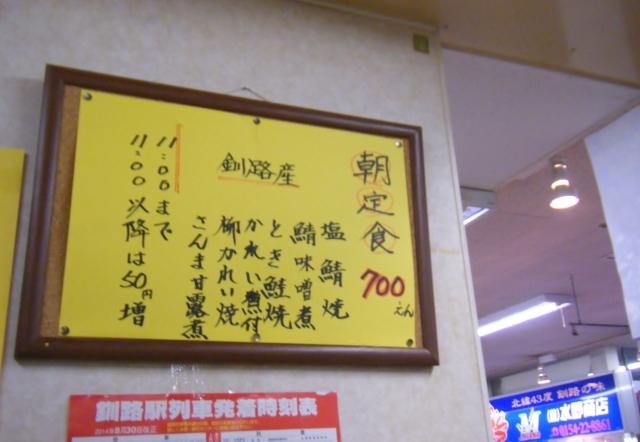 朝定食 700えん
釧路産
塩鯖焼
鯖味噌煮
とき鮭焼
かれい煮付
柳かれい焼
さんま甘露煮
11:00まで
11:00以降は50円増
釧路駅列車発着時刻表
2014年8月30日改正
北緯43度 釧路の味
水野商店
0154-22-8861